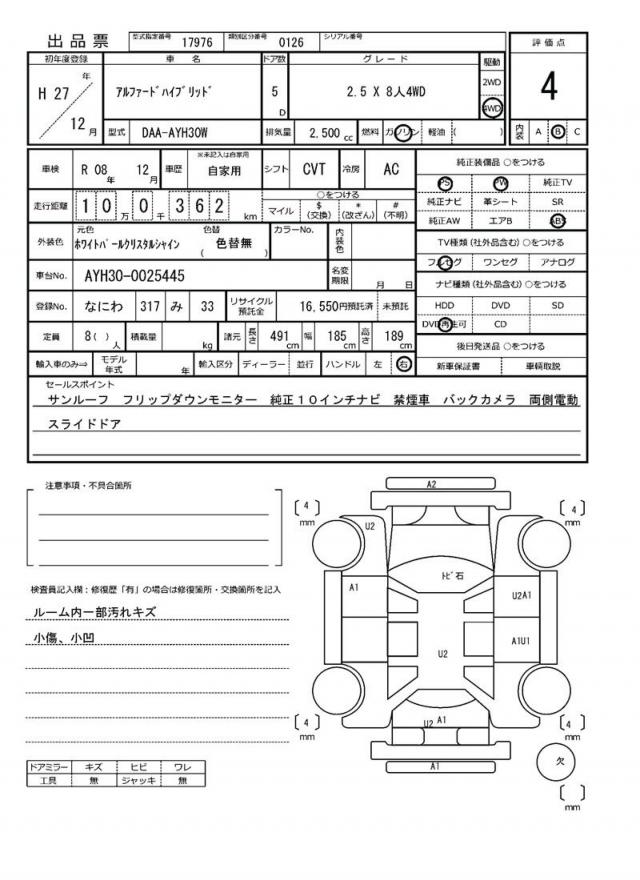 出品票 型式指定番号 17976 類別区分番号 0126 シリアル番号
評価点
4
初年度登録 車名 ドア数 グレード 駆動
H 27 年 12 月 アルファードハイブリッド 5 D 2.5 X 8人4WD 2WD 4WD
型式 DAA-AYH30W 排気量 2,500 cc 燃料 ガソリン 軽油 ( ) 内装 A B C
車検 R 08 年 12 月 車歴 ※未記入は自家用 自家用 シフト CVT 冷房 AC
走行距離 1 0 万 0 千 3 6 2 km ○をつける
マイル $ (交換) * (改ざん) # (不明)
外装色 元色 ホワイトパールクリスタルシャイン 色替 ( 色替無 ) カラーNo. 内装色
車台No. AYH30-0025445 名変期限 月 日
登録No. なにわ 317 み 33 リサイクル預託金 16,550円預託済 未預託
定員 8( ) 人 積載量 kg 諸元 長さ 491 cm 幅 185 cm 高さ 189 cm
輸入車のみ⇒ モデル年式 年 輸入区分 ディーラー 並行 ハンドル 左 右
純正装備品 ○をつける
PS PW 純正TV
純正ナビ 革シート SR
純正AW エアB ABS
TV種類(社外品含む)○をつける
フルセグ ワンセグ アナログ
ナビ種類(社外品含む)○をつける
HDD DVD SD
DVD再生可 CD
後日発送品 ○をつける
新車保証書 車輌取説
セールスポイント
サンルーフ フリップダウンモニター 純正10インチナビ 禁煙車 バックカメラ 両側電動
スライドドア
注意事項・不具合箇所
検査員記入欄:修復歴「有」の場合は修復箇所・交換箇所を記入
ルーム内一部汚れキズ
小傷、小凹
ドアミラー キズ ヒビ ワレ
工具 無 ジャッキ 無
A2
[ 4 ] mm
[ 4 ] mm
U2
トビ石
A1
U2A1
A1U1
U2
[ 4 ] mm
U2 A1
[ 4 ] mm
A1
欠
[ ] mm